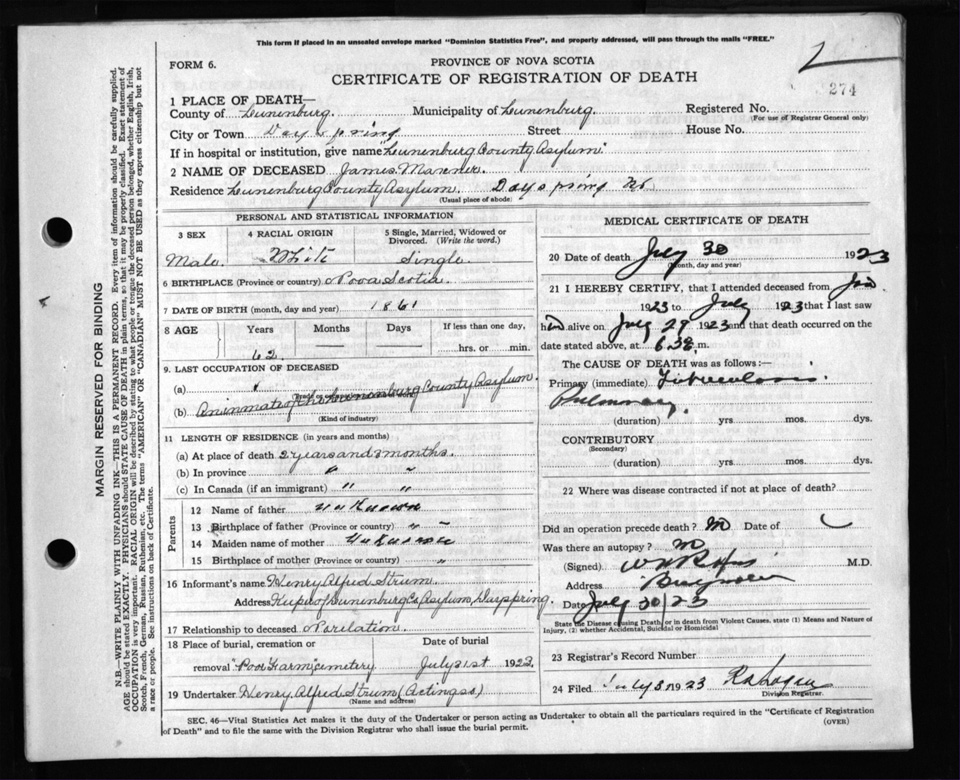 This form if placed in an unsealed envelope marked "Dominion Statistics Free", and properly addressed, will pass through the mails "FREE."
FORM 6.
PROVINCE OF NOVA SCOTIA
CERTIFICATE OF REGISTRATION OF DEATH
274
1 PLACE OF DEATH—
County of Lunenburg. Municipality of Lunenburg. Registered No.
(For use of Registrar General only)
City or Town Dayspring Street House No.
If in hospital or institution, give name "Lunenburg County Asylum"
2 NAME OF DECEASED James Manner
Residence Lunenburg County Asylum. Dayspring NS
(Usual place of abode)
PERSONAL AND STATISTICAL INFORMATION
3 SEX 4 RACIAL ORIGIN 5 Single, Married, Widowed or Divorced. (Write the word.)
Male. White Single.
6 BIRTHPLACE (Province or country) Nova Scotia
7 DATE OF BIRTH (month, day and year) 1861
8 AGE Years Months Days If less than one day,
62 hrs. or min.
9. LAST OCCUPATION OF DECEASED
(a)
(b) An inmate of the Lunenburg County Asylum.
(Kind of industry)
11 LENGTH OF RESIDENCE (in years and months)
(a) At place of death 2 years and 3 months.
(b) In province " "
(c) In Canada (if an immigrant) " "
Parents
12 Name of father unknown
13 Birthplace of father (Province or country) "
14 Maiden name of mother Unknown
15 Birthplace of mother (Province or country) "
16 Informant's name Henry Alfred Strum
Address Keeper of Lunenburg Co. Asylum, Dayspring.
17 Relationship to deceased No relation.
18 Place of burial, cremation or Date of burial
removal "Poor Farm" Cemetery July 31st 1923
19 Undertaker Henry Alfred Strum (Acting as)
(Name and address)
MEDICAL CERTIFICATE OF DEATH
20 Date of death July 30 1923
(month, day and year)
21 I HEREBY CERTIFY, that I attended deceased from Jan
1923 to July 1923 that I last saw
him alive on July 29 1923 and that death occurred on
date stated above, at 6.30 m.
The CAUSE OF DEATH was as follows:—
Primary (immediate) Tuberculosis.
Pulmonary.
(duration) yrs mos. dys.
CONTRIBUTORY
(Secondary)
(duration) yrs. mos. dys.
22 Where was disease contracted if not at place of death?
Did an operation precede death? no Date of
Was there an autopsy? no
(Signed) M.D.
Address
Date July 30/23
State the Disease causing Death, or in death from Violent Causes, state (1) Means and Nature of Injury, (2) whether Accidental, Suicidal or Homicidal
23 Registrar's Record Number
24 Filed July 31 1923
Division Registrar.
SEC. 46—Vital Statistics Act makes it the duty of the Undertaker or person acting as Undertaker to obtain all the particulars required in the "Certificate of Registration
of Death" and to file the same with the Division Registrar who shall issue the burial permit.
(OVER)
MARGIN RESERVED FOR BINDING
N.B.—WRITE PLAINLY WITH UNFADING INK—THIS IS A PERMANENT RECORD. Every item of information should be carefully supplied.
AGE should be stated EXACTLY. PHYSICIANS should STATE CAUSE OF DEATH in plain terms, so that it may be properly classified. Exact statement of
OCCUPATION is very important. RACIAL ORIGIN will be described by stating to what people or tongue the deceased person belonged, whether English, Irish,
Scotch, French, German, Russian, Ruthenian, etc. The terms "AMERICAN" OR "CANADIAN" MUST NOT BE USED as they express citizenship but not
a race or people. See instructions on back of Certificate.